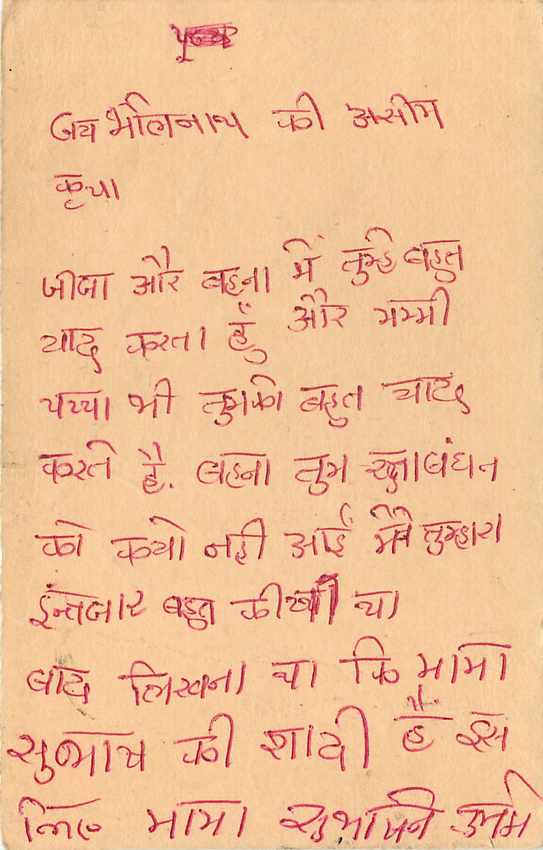 जय भोलेनाथ की असीम
कृपा
जीजा और बहना में तुम्हे बहुत
याद करता हूँ और मम्मी
पप्पा भी तुमको बहुत याद
करते है. बहना तुम रक्षाबंधन
को क्यो नही आई मैने तुम्हारा
इन्तजार बहुत कीया था
बाद लिखना था कि मामा
सुभाष की शादी है इस
लिए मामा सुभाषने